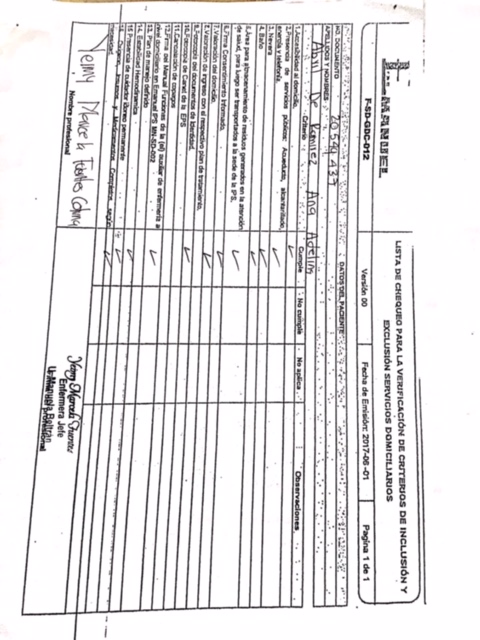 EMMANUEL
F-SD-GDC-012
LISTA DE CHEQUEO PARA LA VERIFICACIÓN DE CRITERIOS DE INCLUSIÓN Y
EXCLUSIÓN SERVICIOS DOMICILIARIOS
Versión 00
Fecha de Emisión: 2017-06-01
Pagina 1 de 1
DATOS DEL PACIENTE
NO. DOCUMENTO
APELLIDOS Y NOMBRES
De Ramirez Ana
Criterio
Cumple
No cumple
No aplica
Observaciones
1. Accesibilidad al domicilio.
2. Presencia de servicios públicos: Acueducto, alcantarillado,
energía y telefonía
3. Nevera
4. Baño
5. Área para almacenamiento de residuos generados en la atención
de salud, para luego ser transportados a la sede de la IPS.
6. Firma Consentimiento Informado.
7. Valoración del domicilio.
8. Valoración de ingreso con el respectivo plan de tratamiento.
9. Fotocopia del documentos de identidad.
10. Fotocopia de Carnet de la EPS
11. Cancelación de copagos
12. Firma del Manual Funciones de la (el) auxiliar de enfermería a
domiciliario en Emanuel IPS MN-SD-002
13. Plan de manejo definido
14. Estabilidad Hemodinámica
15. Presencia de cuidador idóneo permanente
16. Insumos y Medicamentos Completos según
necesidad
Yeimy Marcela Fuentes
Nombre profesional
Yeimy Marcela Fuentes
Enfermera Jefe
U. Manuela Beltrán
profesional